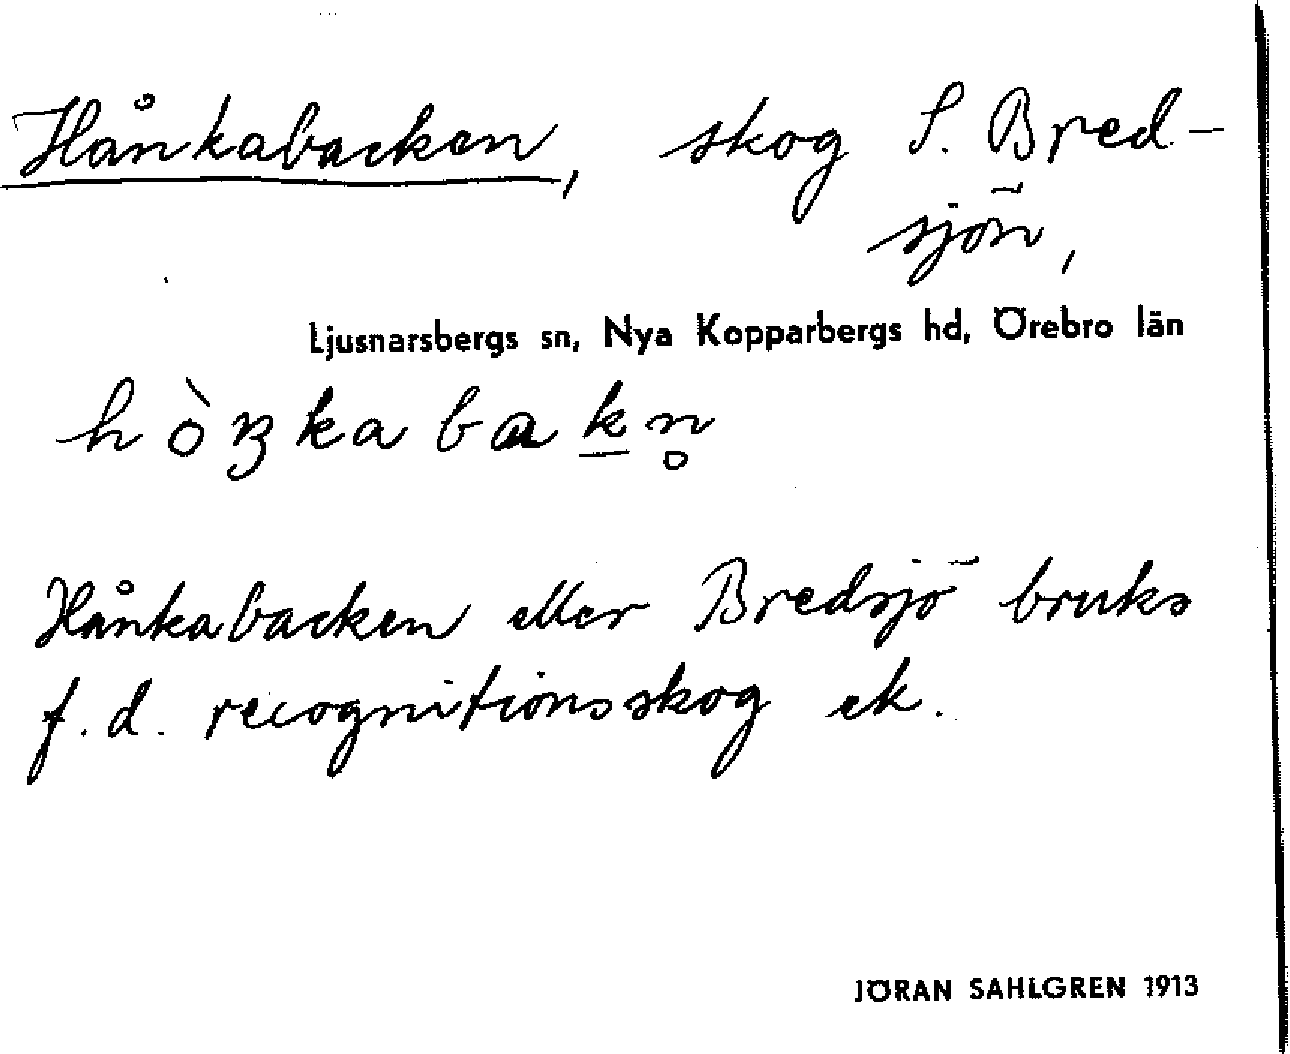 Hånkabacken, skog S. Bred-
sjön,
Ljusnarsbergs sn, Nya Kopparbergs hd, Örebro län
hòŋkabak̲n̥
Hånkabacken eller Bredsjö bruks
f.d. recognitionsskog ek.
JÖRAN SAHLGREN 1913